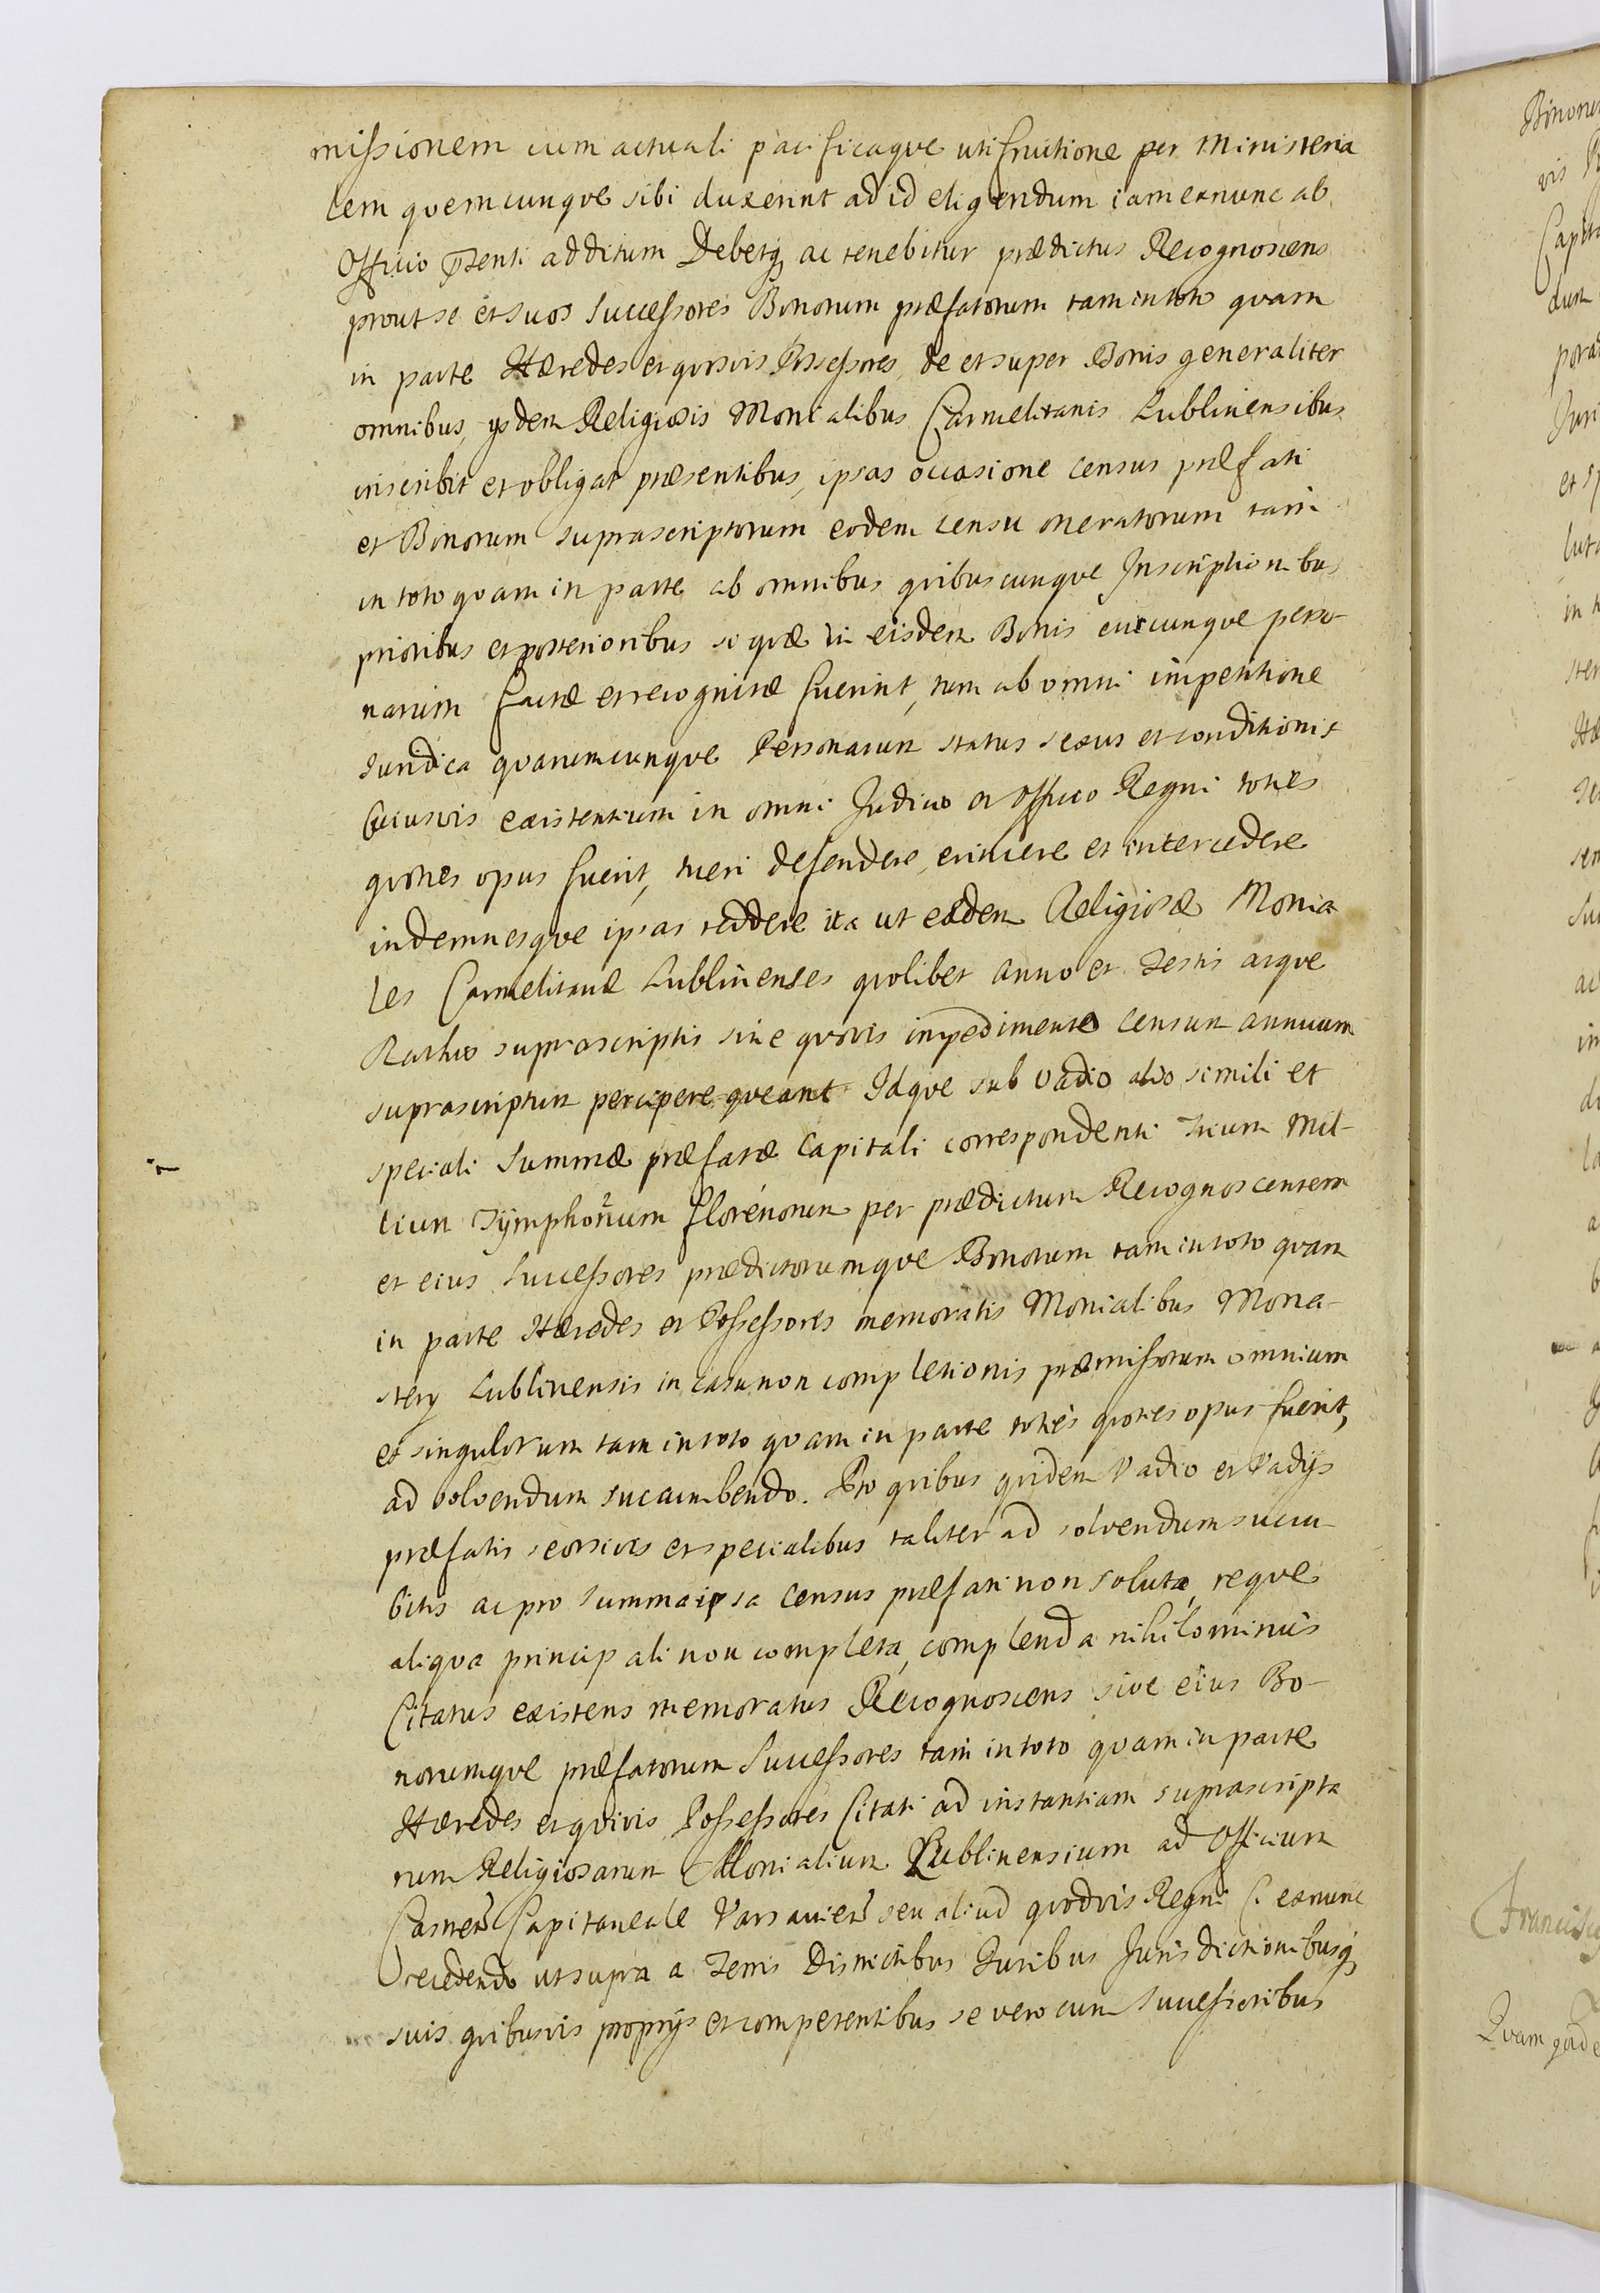 missionem cum actuali pacificaque utifruitione per Ministeria
lem quemcunque sibi duxerint ad id eligendum iam ex nunc ab
Officio p̄senti additum Debetq ac tenebitur prædictus Recognoscens
prout se et suos Successores Bonorum præfatorum tam in toto quam
in parte Hæredes et quosvis Possessores, de et super Bonis generaliter
omnibus, ysdem Religiosis Monialibus Carmelitanis Lublinensibus
inscribit et obligat præsentibus, ipsas occasione census præfati
et Bonorum suprascriptorum eodem censu oneratorum tam
in toto quam in parte ab omnibus quibuscunque Inscriptionibus
prioribus et posterioribus si quæ in eisdem Bonis cuicunque perso-
narum factæ et recognitæ fuerint, tum ab omni impetitione
Iuridica quarumcunque Personarum status sexus et conditionis
Cuiusvis existentium in omni Judicio et Officio Regni toties
quoties opus fuerit, tueri defendere, evincere et intercedere
indemnesque ipsas reddere ita ut eædem Religiosæ Monia
les Carmelitanæ Lublinenses quolibet anno et Festis atque
Rathis suprascriptis sine quovis impedimento Censum annuum
suprascriptum percipere queant Idque sub vadio alio simili et
speciali Summæ præfatæ Capitali correspondenti Trium Mil-
lium Tÿmphonum florenorum per prædictum Recognoscentem
et eius Successores prædictorumque Bonorum tam in toto quam
in parte Hæredes et Possessores memoratis Monialibus Mona-
stery Lublinensis in casu non completionis præmissorum omnium
et singulorum tam in toto quam in parte toties quoties opus fuerit,
ad solvendum succumbendo. Pro quibus quidem Vadio et Vadijs
præfatis seorsivis et specialibus taliter ad solvendum succu-
bitis ac pro Summa ipsa Census præfati non soluta, reque
aliqua principali non completa, complenda nihilominus
Citatus existens memoratus Recognoscens sive eius Bo-
norumque præfatorum Successores tam in toto quam in parte
Hæredes et quivis Possessores Citati ad instantiam suprascripta
rum Religiosarum Monialium Lublinensium ad Officium
Castren̄ Capitaneale Varsavien̄ seu aliud quodvis Regni C. ex nunc
recedendo ut supra a Terris Districtibus Iuribus Jurisdictionibusq
suis quibusvis proprijs et competentibus se vero cum Successoribus